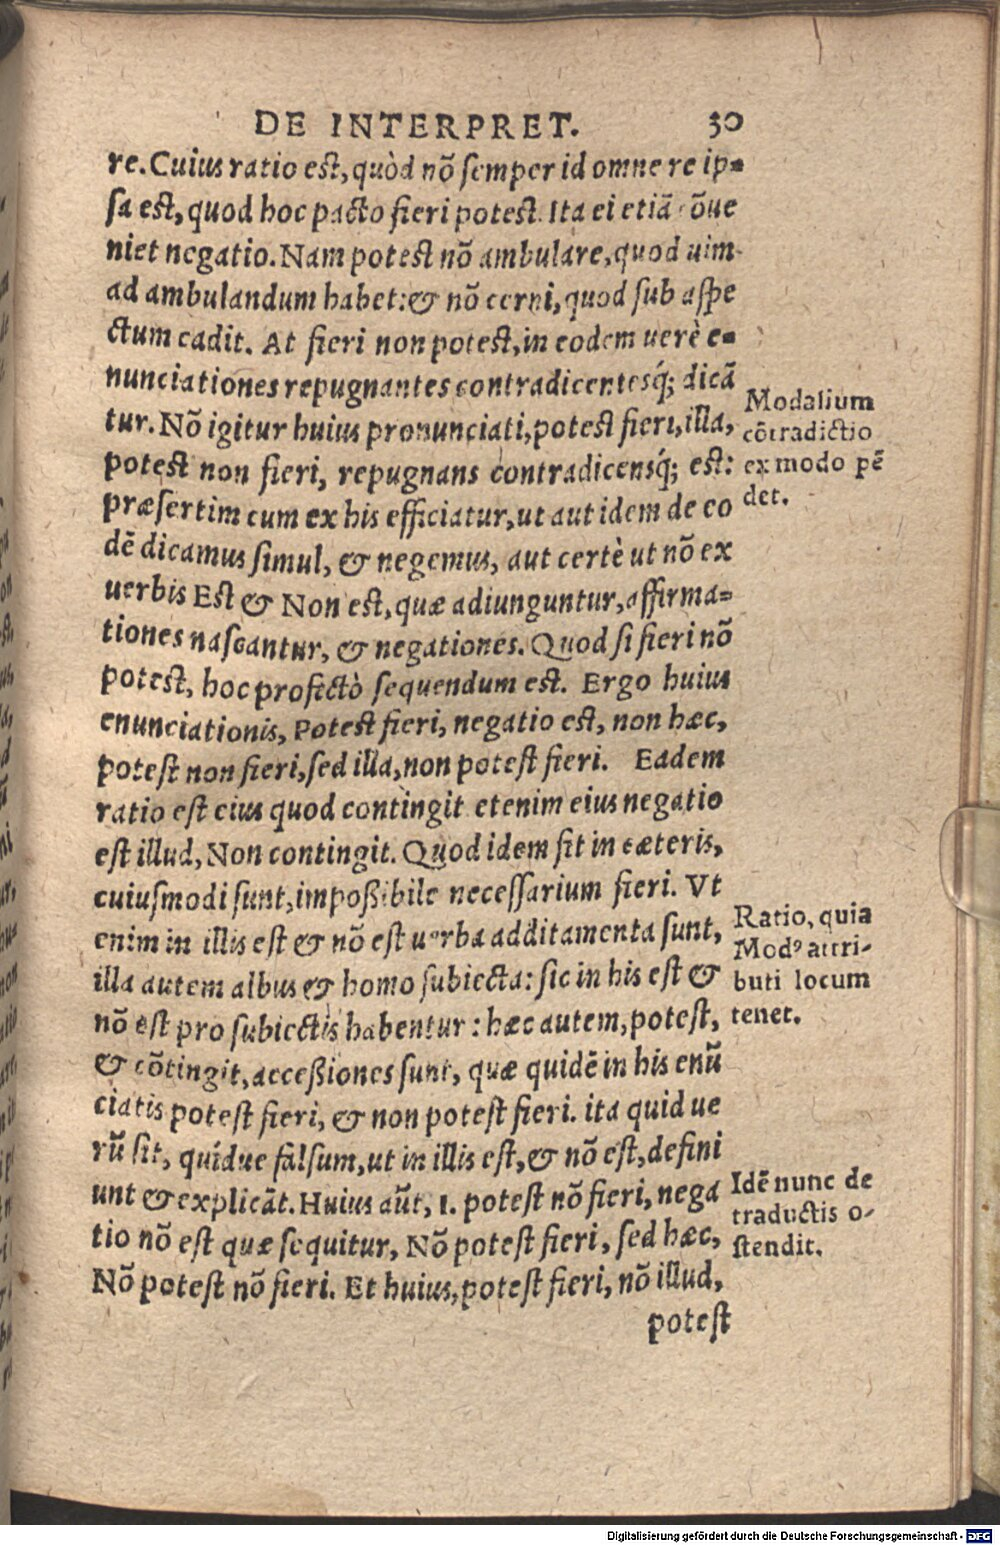 DE INTERPRET. 30
re. Cuius ratio est, quòd nõ semper id omne re ip=
sa est, quod hoc pacto fieri potest. Ita ei etiã cõue
niet negatio. Nam potest nõ ambulare, quod uim
ad ambulandum habet: & nõ cerni, quod sub aspe
ctum cadit. At fieri non potest, in eodem uerè e=
nunciationes repugnantes contradicentesq́; dicã
tur. Nõ igitur huius pronunciati, potest fieri, illa,
potest non fieri, repugnans contradicensq́; est:
præsertim cum ex his efficiatur, ut aut idem de eo
dẽ dicamus simul, & negemus, aut certè ut nõ ex
uerbis Est & Non est, quæ adiunguntur, affirma=
tiones nascantur, & negationes. Quod si fieri nõ
potest, hoc profictò sequendum est. Ergo huius
enunciationis, Potest fieri, negatio est, non hæc,
potest non fieri, sed illa, non potest fieri. Eadem
ratio est eius quod contingit etenim eius negatio
est illud, Non contingit. Quod idem sit in cæteris,
cuiusmodi sunt, impoßibile necessarium fieri. Vt
enim in illis est & nõ est uerba additamenta sunt,
illa autem albus & homo subiecta: sic in his est &
nõ est pro subiectis habentur: hæc autem, potest,
& cõtingit, acceßiones sunt, quæ quidẽ in his enũ
ciatis potest fieri, & non potest fieri. ita quid ue
rũ sit, quídue falsum, ut in illis est, & nõ est, defini
unt & explicãt. Huius aũt, 1. potest nõ fieri, nega
tio nõ est quæ sequitur, Nõ potest fieri, sed hæc,
Nõ potest nõ fieri. Et huius, potest fieri, nõ illud,
potest
Modalium
cõtradictio
ex modo pẽ
det.
Ratio, quia
Modꝰ attri-
buti locum
tenet.
Idẽ nunc de
traductis o-
stendit.
Digitalisierung gefördert durch die Deutsche Forschungsgemeinschaft - DFG